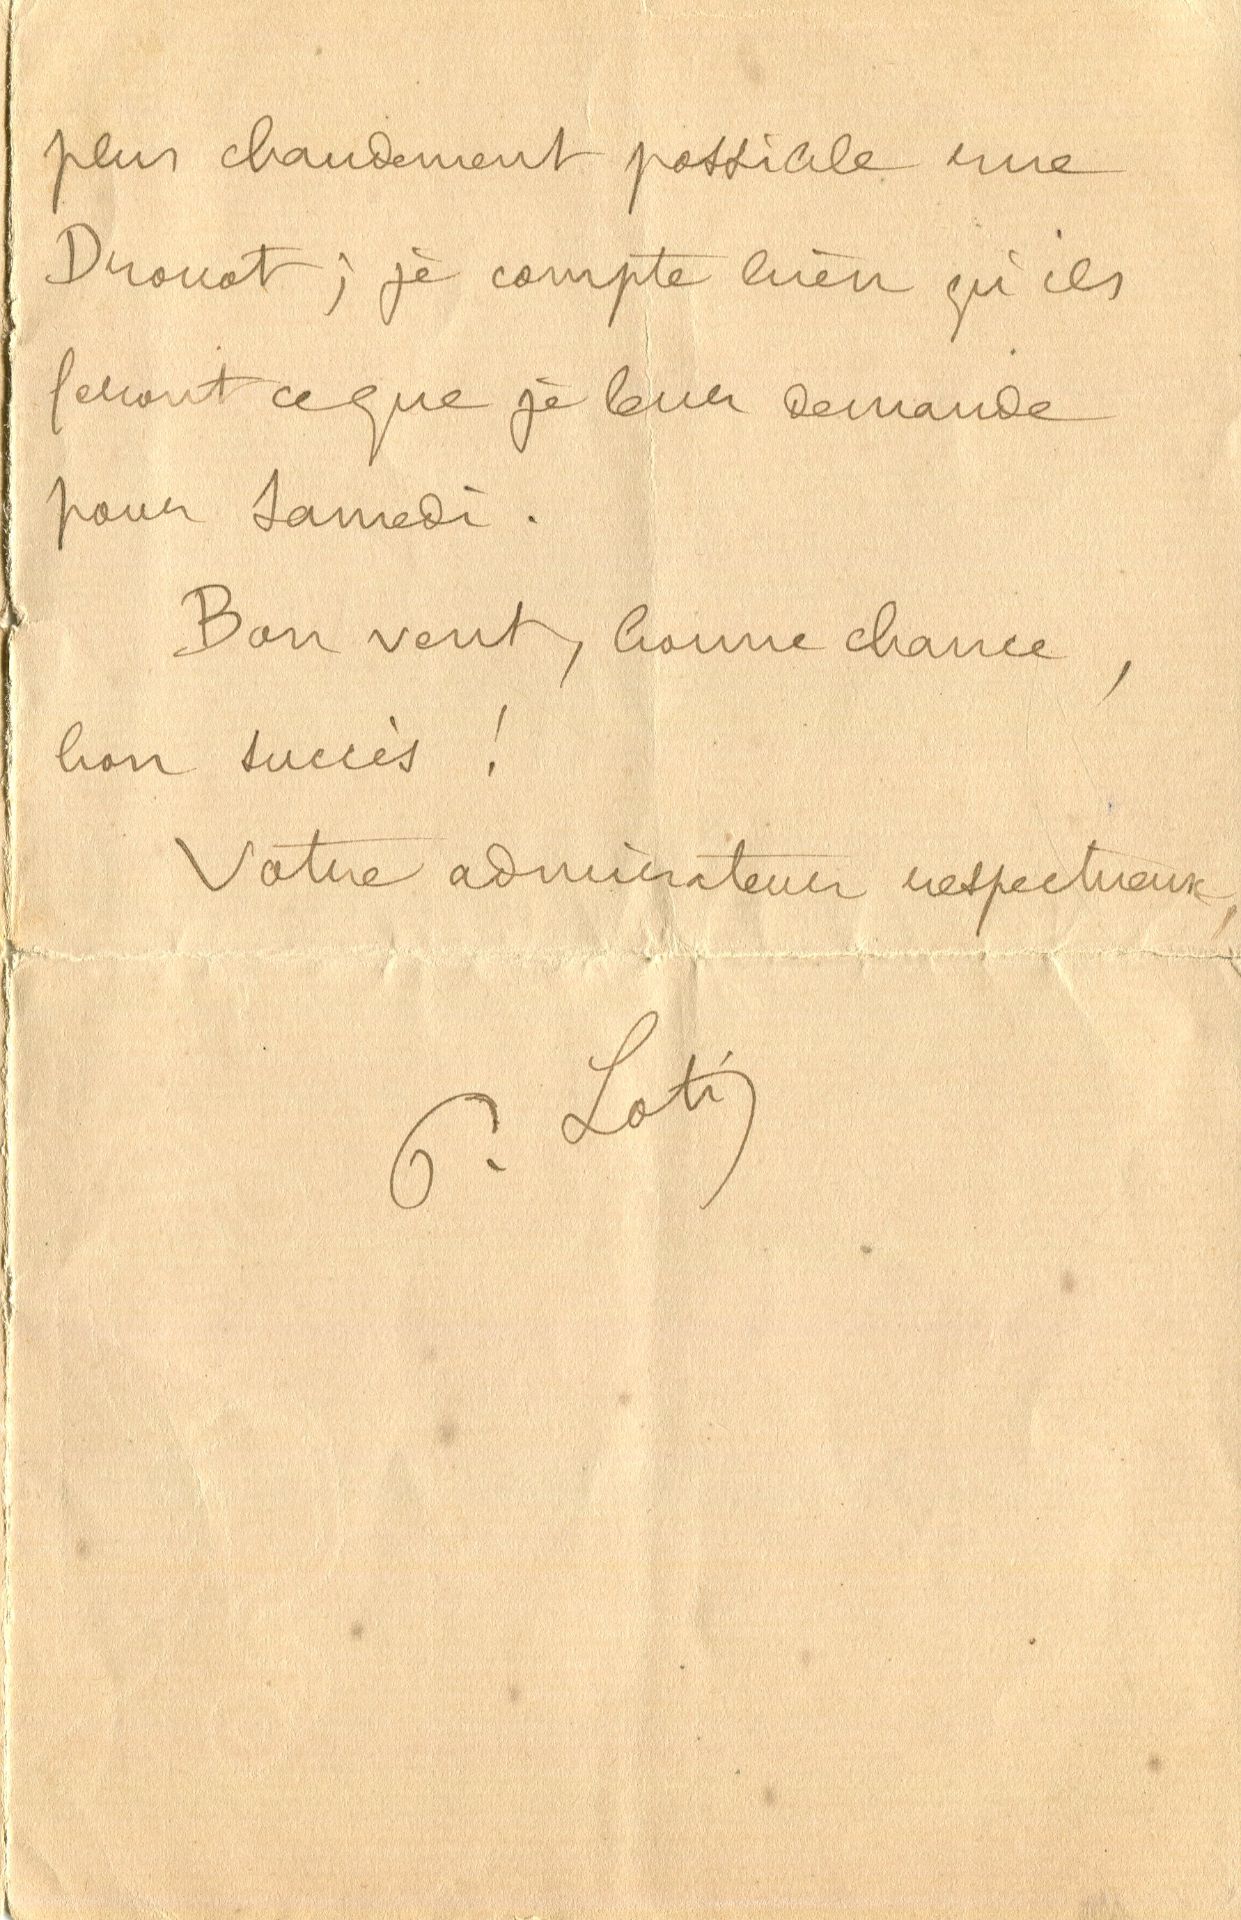 plus chaudement possible rue
Drouot ; je compte bien qu'ils
feront ce que je leur demande
pour Samedi.
Bon vent, bonne chance,
bon succès !
Votre admirateur respectueux,
P. Loti